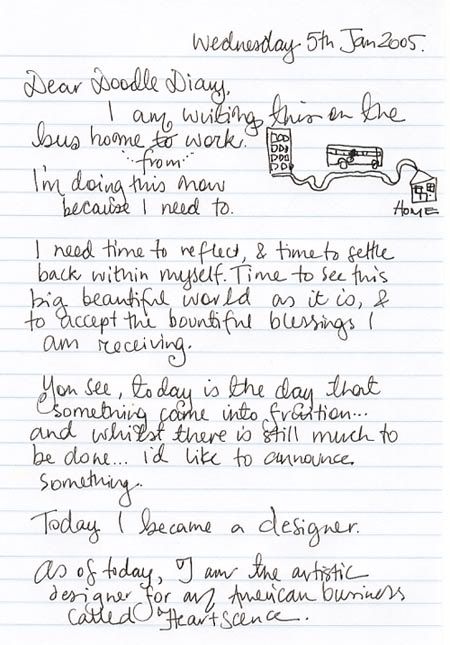 Wednesday 5th Jan 2005.
Dear Doodle Diary,
I am writing this on the
bus home to work.
from
I'm doing this now
because I need to.
HOME
I need time to reflect, & time to settle
back within myself. Time to see this
big beautiful world as it is, &
to accept the bountiful blessings I
am receiving.
You see, today is the day that
something came into fruition...
and whilst there is still much to
be done... i'd like to announce
something.
Today I became a designer.
As of today, I am the artistic
designer for an American business
called Heartscence.